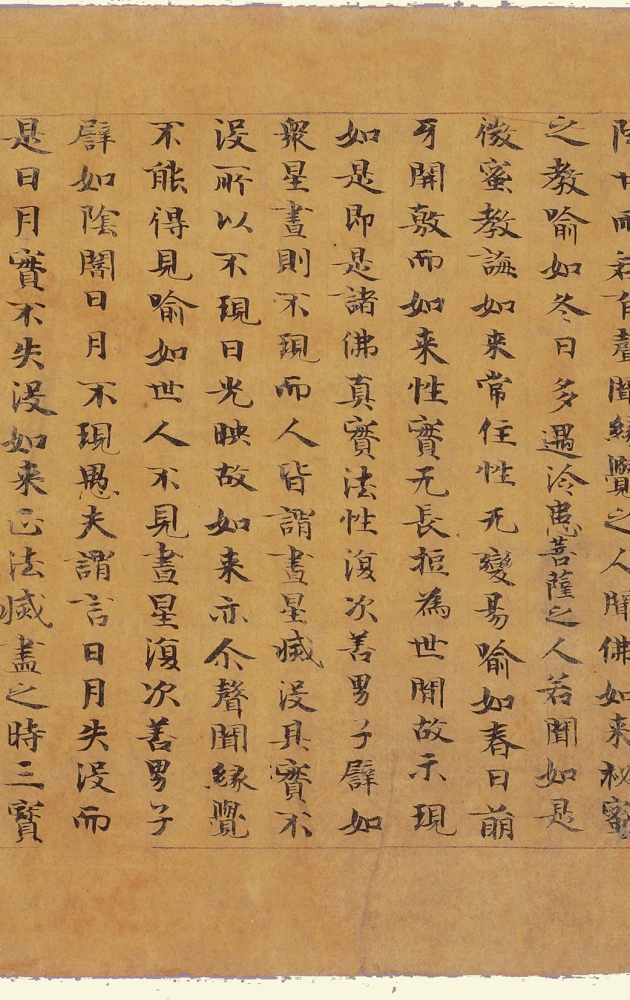 陰中而若有聲聞緣覺之人聞佛如来秘蜜
之教喻如冬日多遇泠患菩薩之人若聞如是
微蜜教誨如来常住性无變易喻如春日萠
牙開敷而如来性實无長短為世間故示現
如是即是諸佛真實法性復次善男子辟如
衆星晝則不現而人皆謂晝星烕没其實不
没所以不現日光映故如来亦尒聲聞緣覺
不能得見喻如世人不見晝星復次善男子
辟如陰闇日月不現愚夫謂言日月失没而
是日月實不失没如来正法烕盡之時三寶